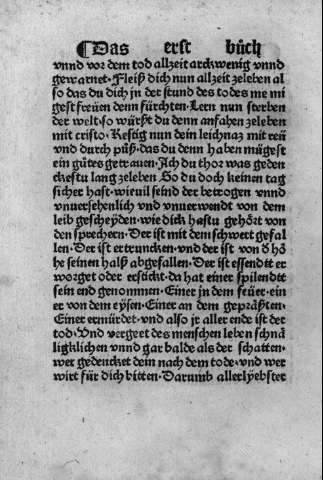 ¶Das erst bůch
vnnd vor dem tod allzeit arckwenig vnnd
gewarnet· Fleiß dich nun allzeit zeleben al
so das du dich jn der stund des todes me mi
gest freüen denn fürchten· Lern nun sterben
der welt· so würst du denn anfahen zeleben
mit cristo· Kestig nun dein leichnaz mit reü
vnd durch půß· das du denn haben mügest
ein gůtes getrauen· Ach du thor was geden
ckestu lang zeleben· So du doch keinen tag
sicher hast· wieuil seind der betrogen vnnd
vnuersehenlich vnd vnuerwendt von dem
leib gescheyden· wie dick hastu gehört von
den sprechern· Der ist mit dem schwert gefal
len· Der ist ertruncken· vnd der ist von d hö
he seinen halß abgefallen· Der ist essendtt er
worget oder erstickt· da hat einer spilendtt
sein end genommen· Einer jn dem feüer· ein
er von dem eysen· Einer an dem geprästen·
Einer ermürdet· vnd also jr aller ende ist der
tod· Vnd vergeet des menschen leben schnä
ligklichen vnnd gar balde als der schatten·
wer gedencket dein nach dem tode· vnd wer
wirt für dich bitten· Darumb allerlyebster